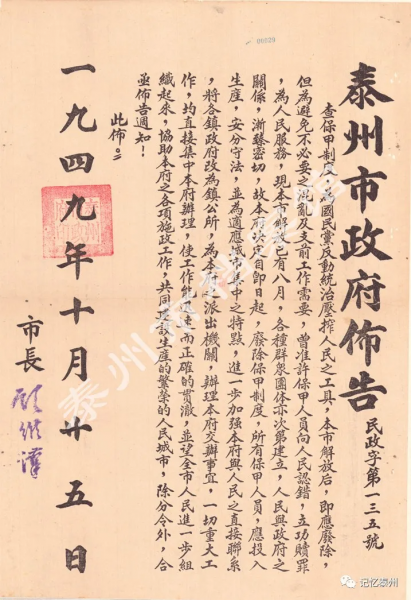 00029
泰州市政府佈告
民政字第一三五號
查保甲制度，為國民黨反動統治壓搾人民之工具，本市解放后，即應廢除，
但為避免不必要之混亂及支前工作需要，曾准許保甲人員向人民認錯，立功贖罪
，為人民服務，現本市解放已有八月，各種群衆團体亦次第建立，人民與政府之
關係，漸臻密切，故本府决定自即日起，廢除保甲制度，所有保甲人員，應投入
生産，安分守法，並為適應城市集中之特點，進一步加强本府與人民之直接聯系
，將各鎮政府改為鎮公所，為本府之派出機關，辦理本府交辦事宜，一切重大工
作，均直接集中本府辦理，使工作能迅速而正確的貫澈，並望全市人民進一步組
織起來，協助本府之各項施政工作，共同建設生産的繁榮的人民城市，除分令外，合
亟佈告週知！
此佈。
一九四九年十月廿五日
市長
记忆泰州